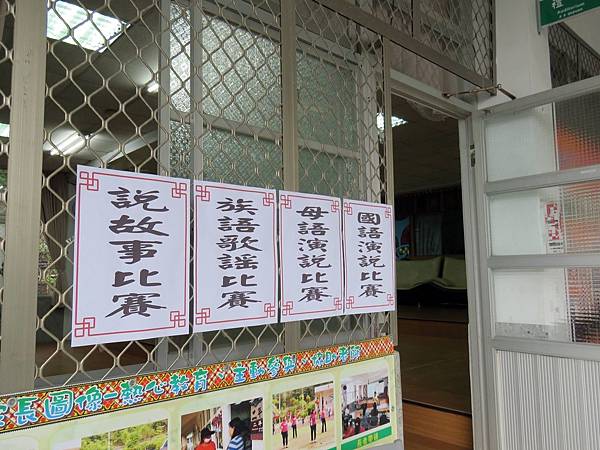 禮
Auditorium
說故事比賽
族語歌謠比賽
母語演說比賽
國語演說比賽
家長圖像-熱心教育、主動參與、協助老師